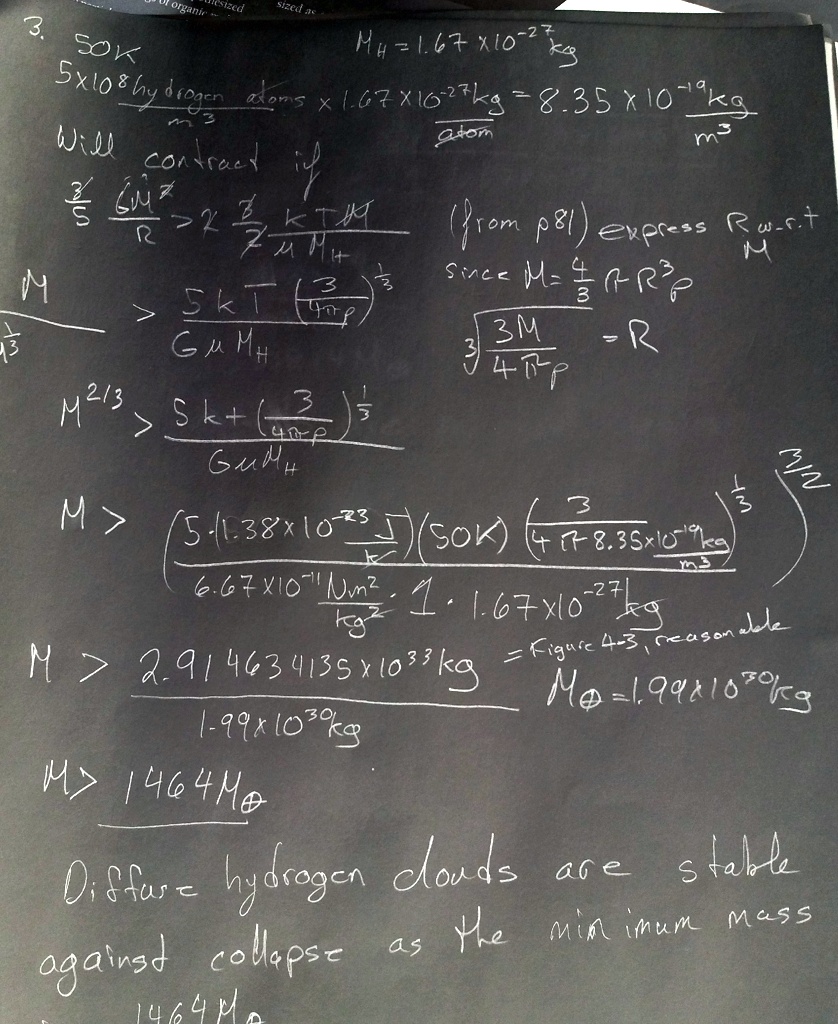 of organic
thesized
sized as
3.
50K
M_H = 1.67 x10^-27 kg
5x10^8 hydrogen atoms / m^3 x 1.67x10^-27 kg / atom = 8.35 x 10^-19 kg / m^3
Will contract if
3/5 GM^2 / R > 2 3/2 kTM / μM_H
(from p81) express R w.r.t M
since M = 4/3 π R^3 ρ
M / M^1/3 > 5kT (3 / 4πρ)^1/3 / GμM_H
∛(3M / 4πρ) = R
M^2/3 > 5kt (3 / 4πρ)^1/3 / GμM_H
M > (5·(1.38x10^-23 J/K)(50K) (3 / 4π 8.35x10^-19 kg/m^3)^1/3 / 6.67x10^-11 Nm^2/kg^2 · 1 · 1.67x10^-27 kg)^3/2
M > 2.914634135x10^33 kg / 1.99x10^30 kg
= Figure 4-3, reasonable
M⊕ = 1.99x10^30 kg
M > 1464M⊕
Diffuse hydrogen clouds are stable
against collapse as the minimum mass
1464M⊕